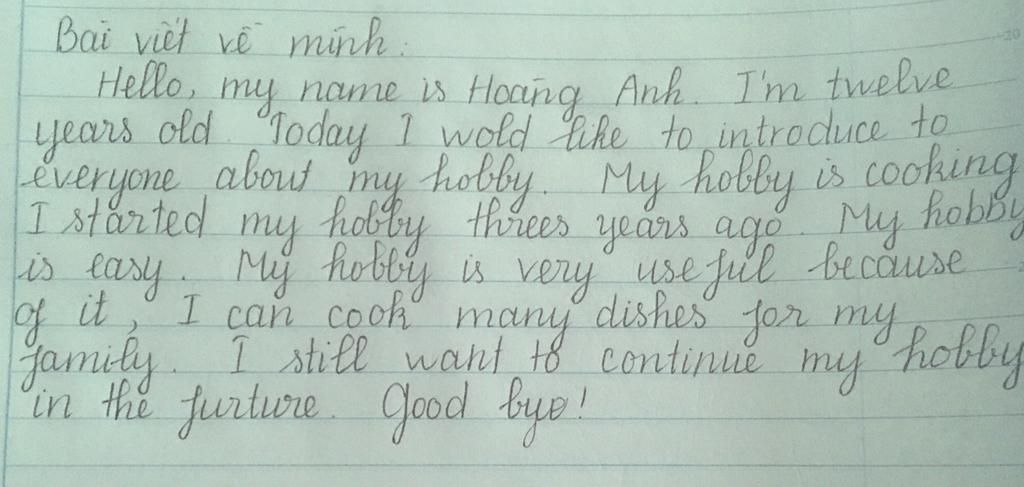 Bài viết về mình:
Hello, my name is Hoàng Anh. I'm twelve
years old. Today I wold like to introduce to
everyone about my hobby. My hobby is cooking
I started my hobby threes years ago. My hobby
is easy. My hobby is very useful because
of it, I can cook many dishes for my
family. I still want to continue my hobby
in the furture. Good bye!